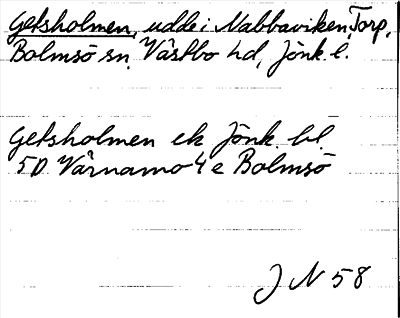 Getsholmen, udde i Nabbaviken, Torp,
Bolmsö sn. Västbo hd, Jönk. l.
Getsholmen ek Jönk. bl.
5D Värnamo 4 e Bolmsö
J N 58